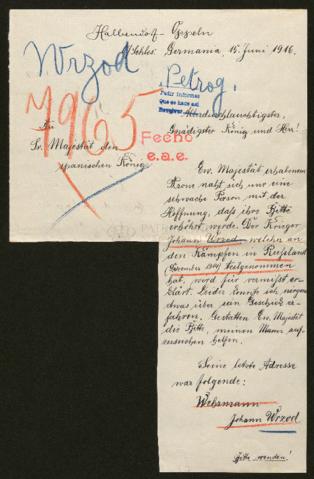 Schles. Germania, 15. Juni 1916.
Wrzod
Petrog.
Pedir informes
7965
Allerdurchlauchtigster,
Gnädigster König und Herr!
Fecho
e.a.e.
Sr. Majestät den
spanischen König
Ew. Majestät erhabenem
Throne naht sich nur eine
schwache Person mit der
Hoffnung, daß ihre Bitte
erhört werde. Der Krieger
Johann Wrzod, welcher an
den Kämpfen in Rußland
teilgenommen
hat, wird für vermißt er-
klärt. Leider konnte ich nirgends
etwas über sein Geschick er-
fahren. Gestatten Ew. Majestät
die Bitte, meinen Mann auf-
zusuchen helfen.
Seine letzte Adresse
war folgende:
Wehrmann
Johann Wrzod
Bitte wenden!